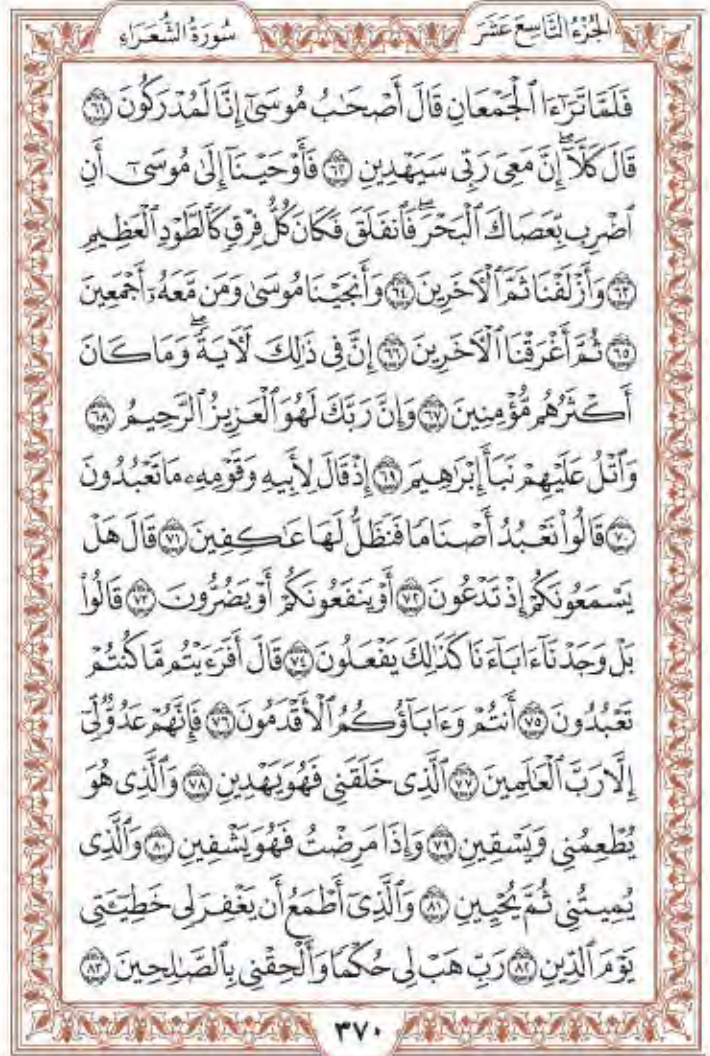 الجُزْءُ التَّاسِعَ عَشَرَ
سُورَةُ الشُّعَرَاءِ
فَلَمَّا تَرَٰٓءَا ٱلْجَمْعَانِ قَالَ أَصْحَٰبُ مُوسَىٰٓ إِنَّا لَمُدْرَكُونَ ٦١
قَالَ كَلَّآ ۖ إِنَّ مَعِىَ رَبِّى سَيَهْدِينِ ٦٢ فَأَوْحَيْنَآ إِلَىٰ مُوسَىٰٓ أَنِ
ٱضْرِب بِّعَصَاكَ ٱلْبَحْرَ ۖ فَٱنفَلَقَ فَكَانَ كُلُّ فِرْقٍ كَٱلطَّوْدِ ٱلْعَظِيمِ
٦٣ وَأَزْلَفْنَا ثَمَّ ٱلْأَخَرِينَ ٦٤ وَأَنجَيْنَا مُوسَىٰ وَمَن مَّعَهُۥٓ أَجْمَعِينَ
٦٥ ثُمَّ أَغْرَقْنَا ٱلْأَخَرِينَ ٦٦ إِنَّ فِى ذَٰلِكَ لَأٓيَةً ۖ وَمَا كَانَ
أَكْثَرُهُم مُّؤْمِنِينَ ٦٧ وَإِنَّ رَبَّكَ لَهُوَ ٱلْعَزِيزُ ٱلرَّحِيمُ ٦٨
وَٱتْلُ عَلَيْهِمْ نَبَأَ إِبْرَٰهِيمَ ٦٩ إِذْ قَالَ لِأَبِيهِ وَقَوْمِهِۦ مَا تَعْبُدُونَ
٧٠ قَالُوا۟ نَعْبُدُ أَصْنَامًا فَنَظَلُّ لَهَا عَٰكِفِينَ ٧١ قَالَ هَلْ
يَسْمَعُونَكُمْ إِذْ تَدْعُونَ ٧٢ أَوْ يَنفَعُونَكُمْ أَوْ يَضُرُّونَ ٧٣ قَالُوا۟
بَلْ وَجَدْنَآ ءَابَآءَنَا كَذَٰلِكَ يَفْعَلُونَ ٧٤ قَالَ أَفَرَءَيْتُم مَّا كُنتُمْ
تَعْبُدُونَ ٧٥ أَنتُمْ وَءَابَآؤُكُمُ ٱلْأَقْدَمُونَ ٧٦ فَإِنَّهُمْ عَدُوٌّ لِّىٓ
إِلَّا رَبَّ ٱلْعَٰلَمِينَ ٧٧ ٱلَّذِى خَلَقَنِى فَهُوَ يَهْدِينِ ٧٨ وَٱلَّذِى هُوَ
يُطْعِمُنِى وَيَسْقِينِ ٧٩ وَإِذَا مَرِضْتُ فَهُوَ يَشْفِينِ ٨٠ وَٱلَّذِى
يُمِيتُنِى ثُمَّ يُحْيِينِ ٨١ وَٱلَّذِىٓ أَطْمَعُ أَن يَغْفِرَ لِى خَطِيٓـَٔتِى
يَوْمَ ٱلدِّينِ ٨٢ رَبِّ هَبْ لِى حُكْمًا وَأَلْحِقْنِى بِٱلصَّٰلِحِينَ ٨٣
٣٧٠